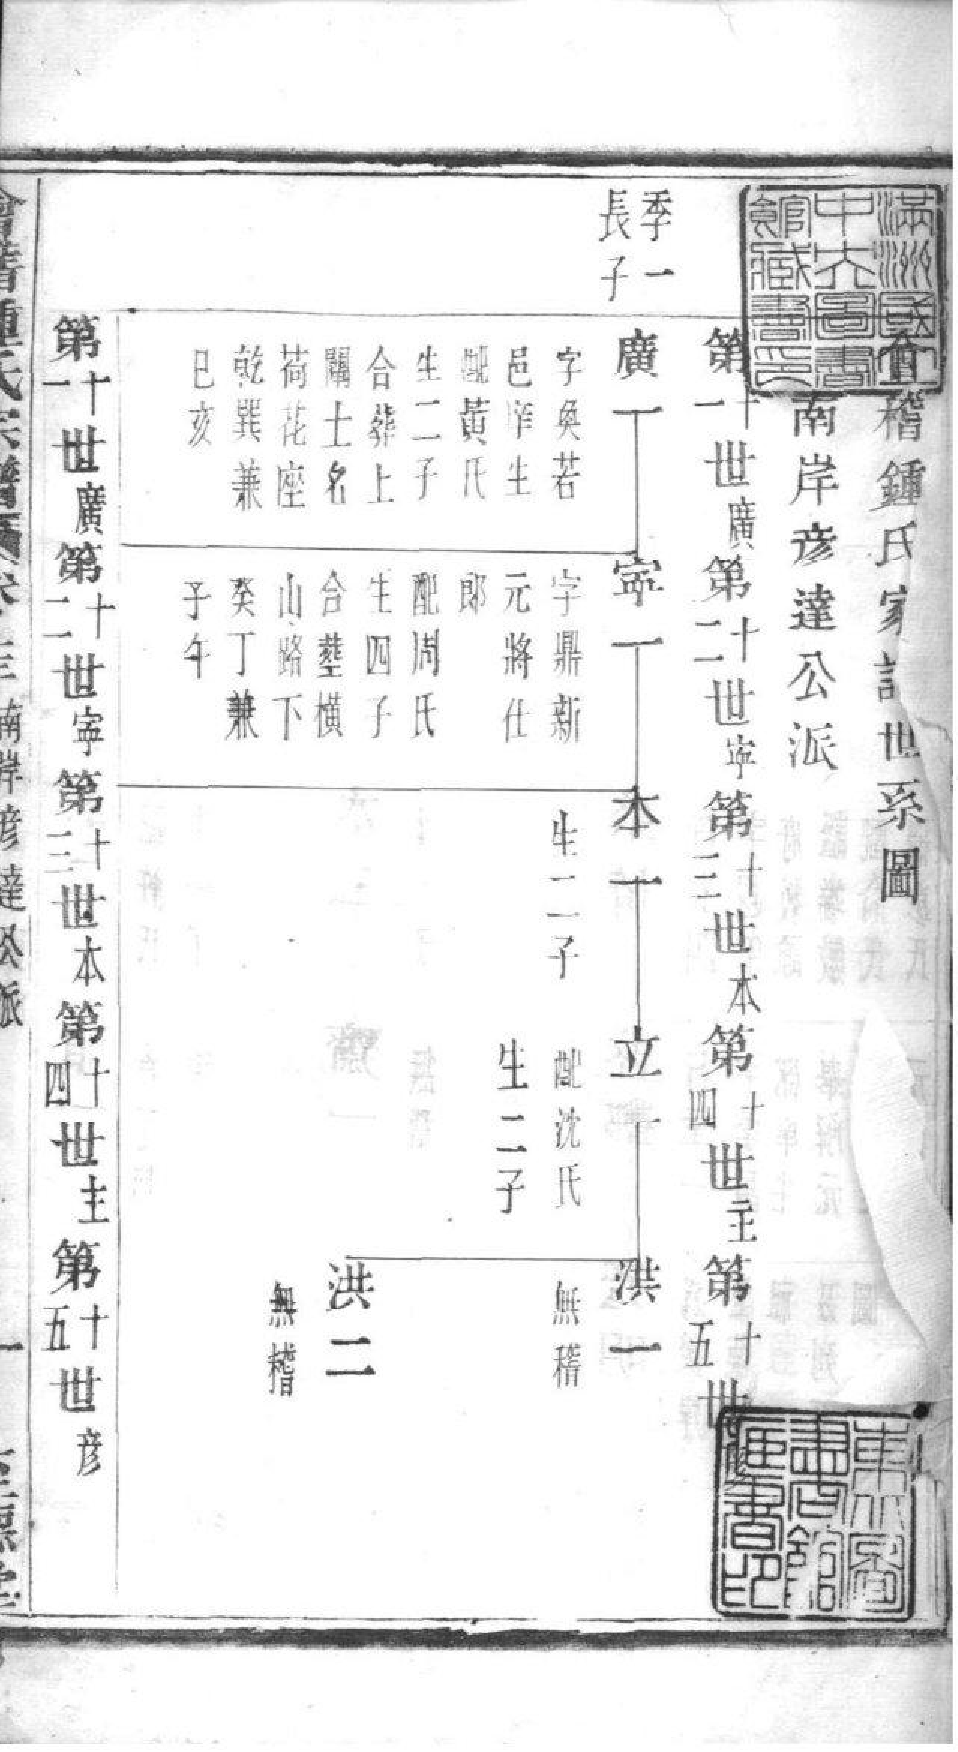 會稽鍾氏家譜世系圖
南岸彦達公派
第十一世廣第十二世寧第十三世本第十四世主第十五世彦
季一
長子
廣一
字奐若
邑庠生
配黃氏
生二子
合葬上
關土名
荷花座
乾巽兼
巳亥
寧一
字鼎新
元將仕
郎
配周氏
生四子
合塟橫
山路下
癸丁兼
子午
本一
生二子
立一
配沈氏
生二子
洪一
無稽
洪二
無稽
第十一世廣第十二世寧第十三世本第十四世主第十五世彦
會稽鍾氏宗譜
南岸彦達公派
一
滿洲國立
中央圖書
館藏書印